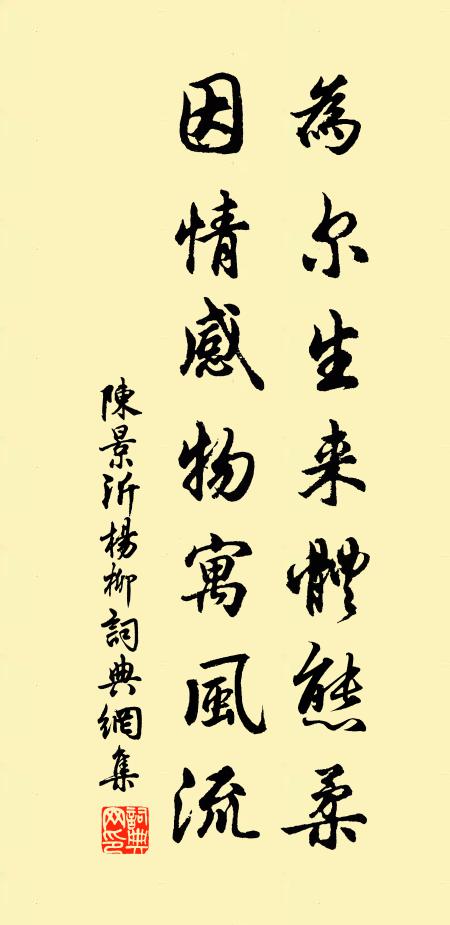 為尔生来體態柔
因情感物寓風流
陳景沂楊柳詞典網集
詞典
网印